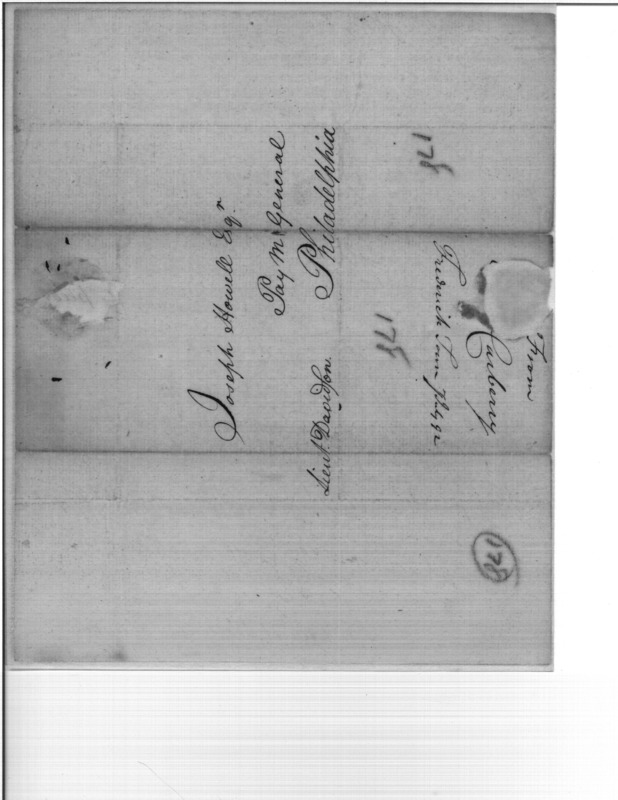 Joseph Howell Esqr
Pay M General
Philadelphia
Lieut. Davidson.
178
178
From
Carbery
Frederick Town
178